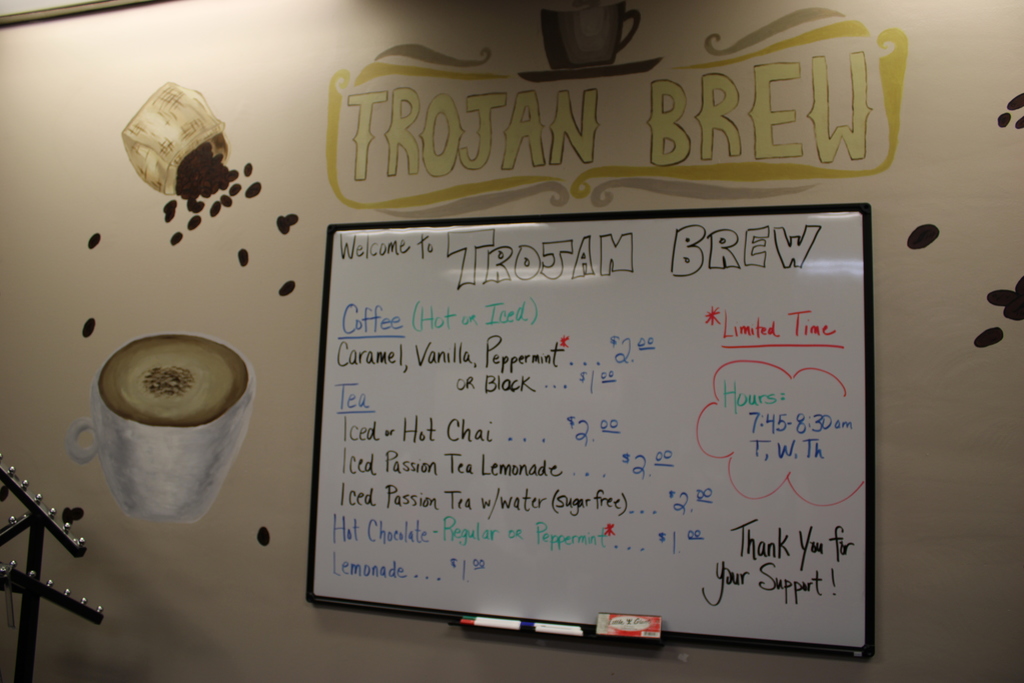 TROJAN BREW
Welcome to TROJAN BREW
Coffee (Hot or Iced)
Caramel, Vanilla, Peppermint* ... $2.00
or Black ... $1.00
Tea
Iced or Hot Chai ... $2.00
Iced Passion Tea Lemonade ... $2.00
Iced Passion Tea w/water (sugar free) ... $2.00
Hot Chocolate - Regular or Peppermint* ... $1.00
Lemonade ... $1.00
*Limited Time
Hours:
7:45-8:30am
T, W, Th
Thank You for
your Support!